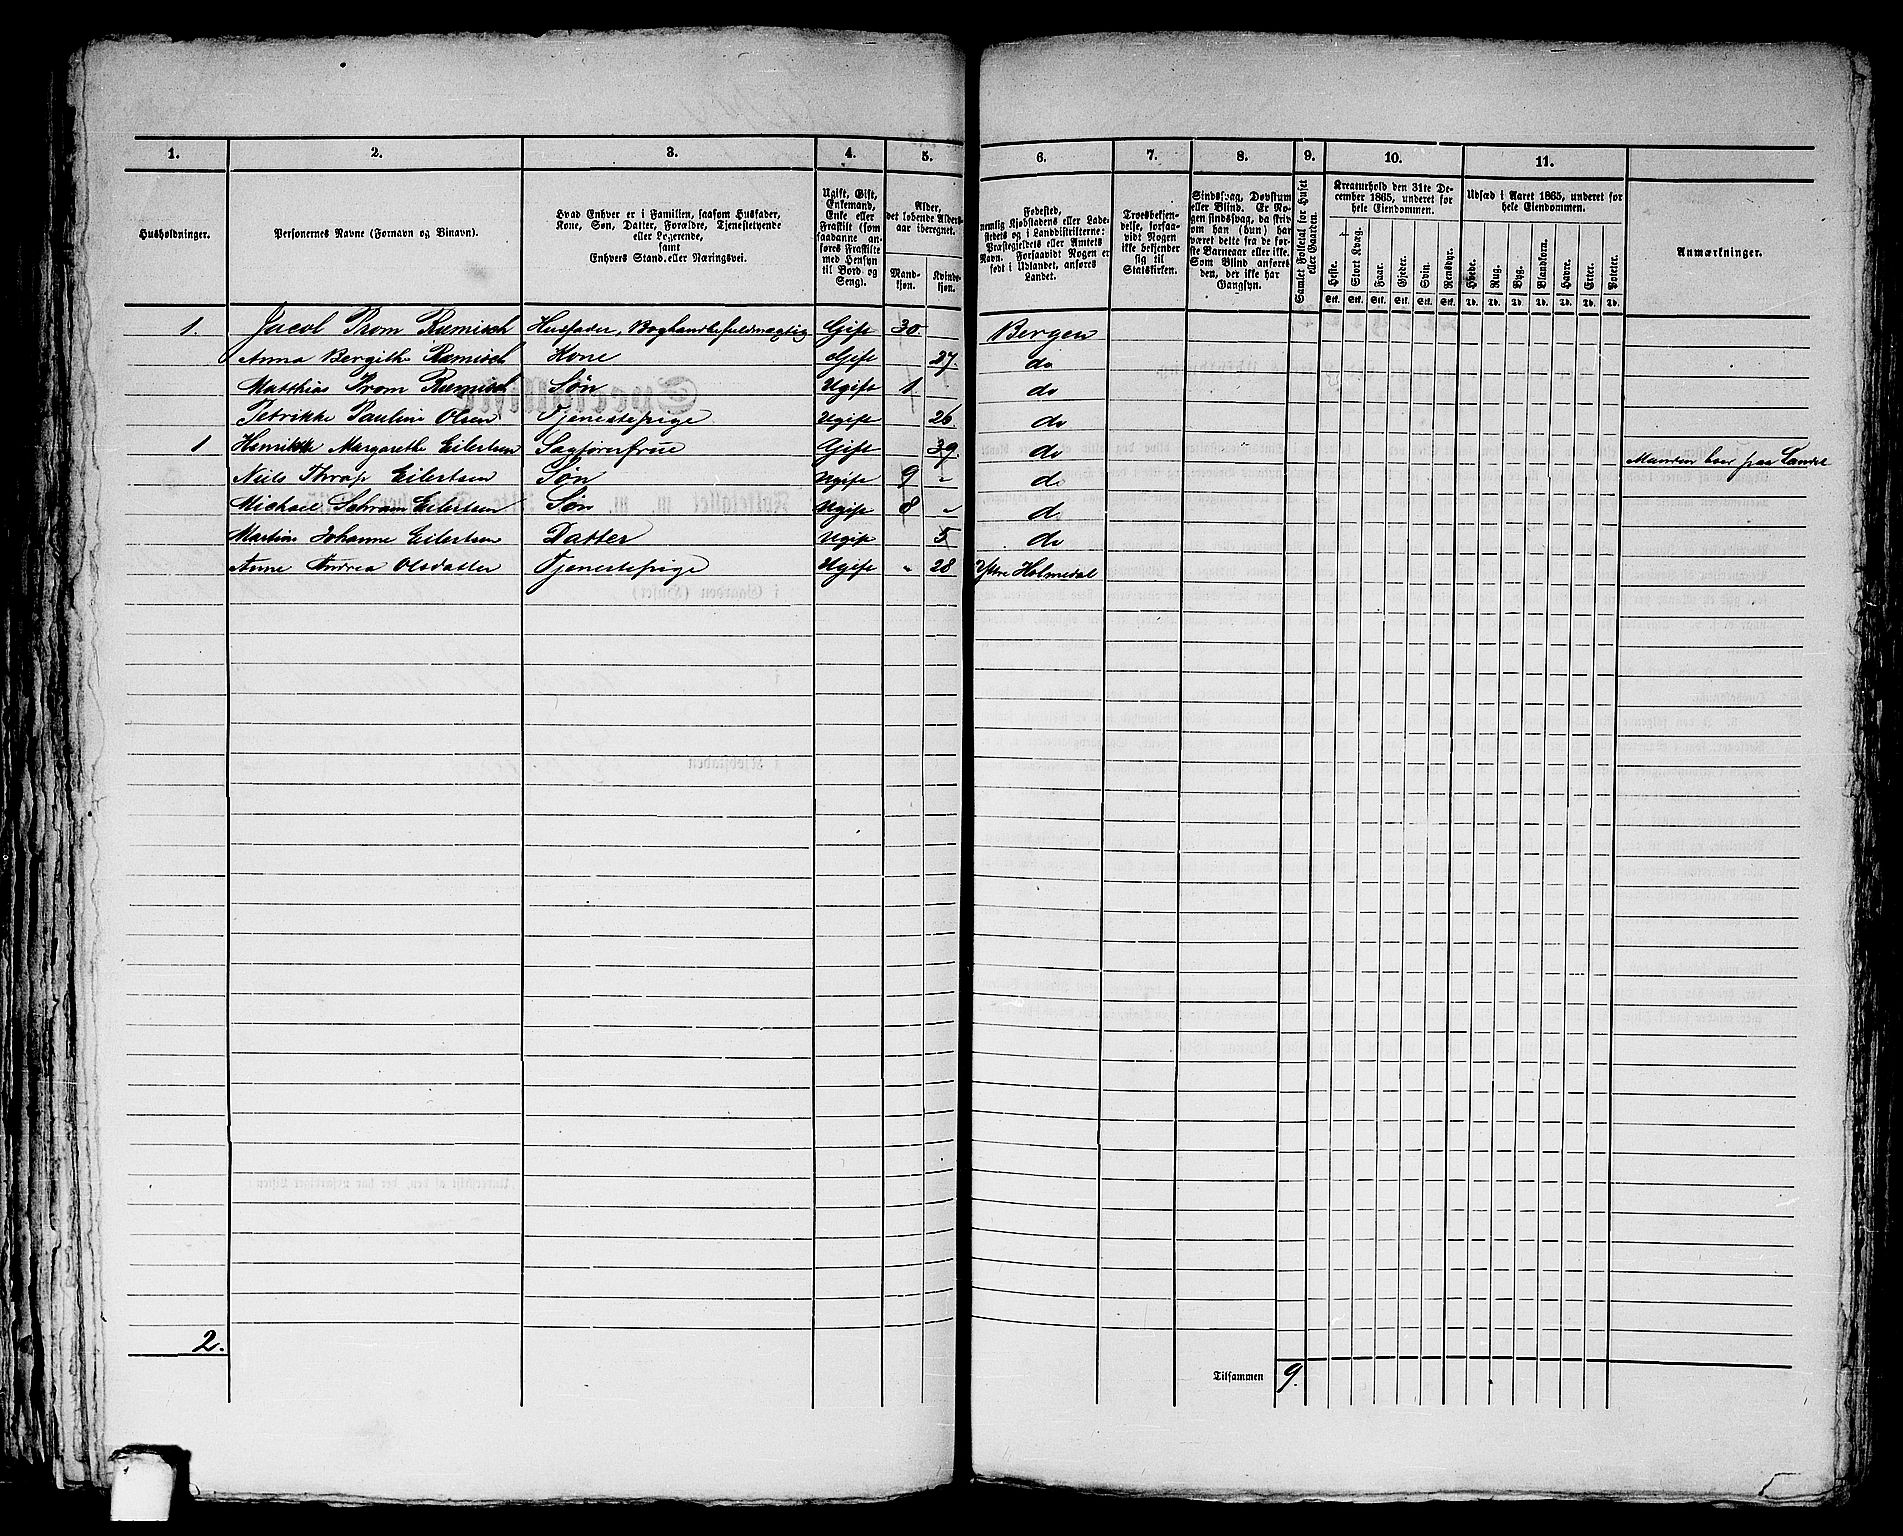 1. 2. 3. 4. 5. 6. 7. 8. 9. 10. 11.
Husholdninger.
Personernes Navne (Fornavn og Binavn).
Hvad Enhver er i Familien, saasom Husfader,
Kone, Søn, Datter, Forældre, Tjenestetyende
eller Logerende,
samt
Enhvers Stand eller Næringsvei.
Ugift, Gift,
Enkemand,
Enke eller
Fraskilt (som
saadanne anføres Fraskilte
med Hensyn
til Bord og
Seng).
Alder,
det løbende Alders-
aar iberegnet.
Mand-
kjøn.
Kvinde-
kjøn.
Fødested,
nemlig Kjøbstadens eller Lade-
stedets og i Landdistrikterne:
Præstegjeldets eller Amtets
Navn. Forsaavidt Nogen er
født i Udlandet, anføres
Landet.
Troesbekjen-
delse, forsaa-
vidt Nogen
ikke bekjender
sig til
Statskirken.
Sindssvag, Døvstum
eller Blind. Er No-
gen sindssvag, da skriv
om han (hun) har
været dette fra de før-
ste Barneaar eller ikke.
Som Blind anføres
den, der ikke har
Gangsyn.
Samlet Folketal for Huset
eller Gaarden.
Kreaturhold den 31te De-
cember 1865, underet for
hele Eiendommen.
Heste. Stort Kvæg. Faar. Gjeder. Svin. Rensdyr.
Stk. Stk. Stk. Stk. Stk. Stk.
Udsæd i Aaret 1865, underet for
hele Eiendommen.
Hvede. Rug. Byg. Blandkorn. Havre. Erter. Poteter.
Td. Td. Td. Td. Td. Td. Td.
Anmærkninger.
1. Jacob Prom Rumisch Husfader, Boghandlefuldmægtig Gift 30 Bergen
Anna Bergithe Rumisch Kone Gift 27. do
Matthias Prom Rumisch Søn Ugift 1 do
Petrikke Pauline Olsen Tjenestepige Ugift 26 do
1 Henrikke Margarethe Eilertsen Sagførerfrue Gift 39. do Manden boer paa Landet
Niels Thrap Eilertsen Søn Ugift 9 " do
Michael Schram Eilertsen Søn Ugift 8 " do
Martine Johanne Eilertsen Datter Ugift 5 do
Anne Andrea Olsdatter Tjenestepige Ugift " 28 Ystre Holmedal
2.
Tilsammen 9.
5